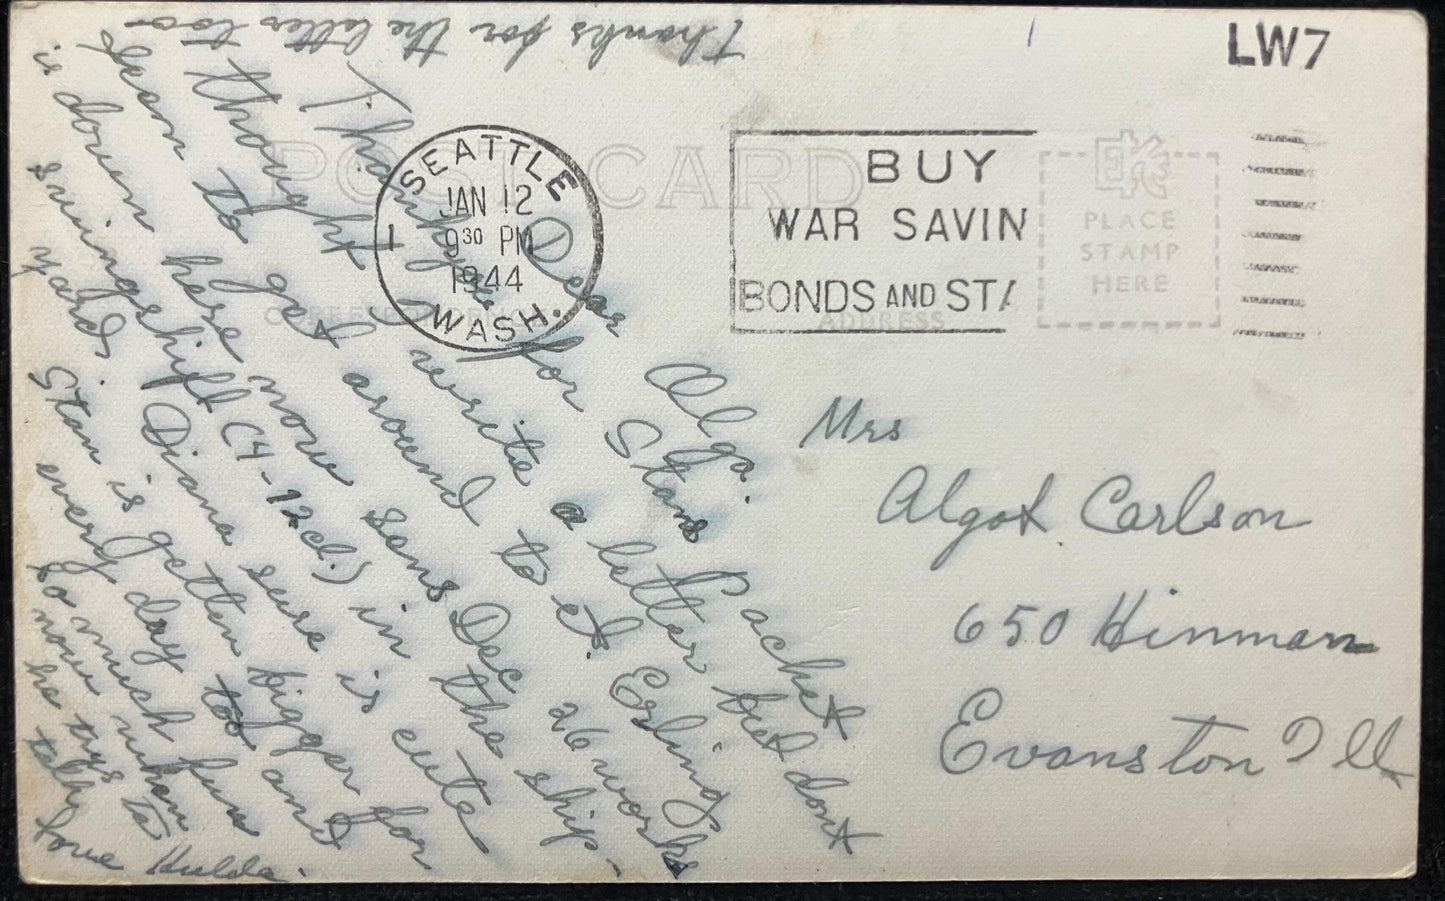 LW7
SEATTLE
JAN 12
9 30 PM
1944
WASH.
1
BUY
WAR SAVIN
BONDS AND STA
POST CARD
CORRESPONDENCE
ADDRESS
EKC
PLACE
STAMP
HERE
Dear Algo.
Thank you for Stans Packet
thought I write a letter but dont
seem to get around to it. Erling
is down here now sans Dec 26 works
swingshift (4-12cl.) in the ship-
yard. Diana sure is cute
Stan is getten bigger for
every day too and
so much fun
now when
he trys to
talk
Love Hulda.
Thanks for the letter too
Mrs
Algot Carlson
650 Hinman
Evanston Ill